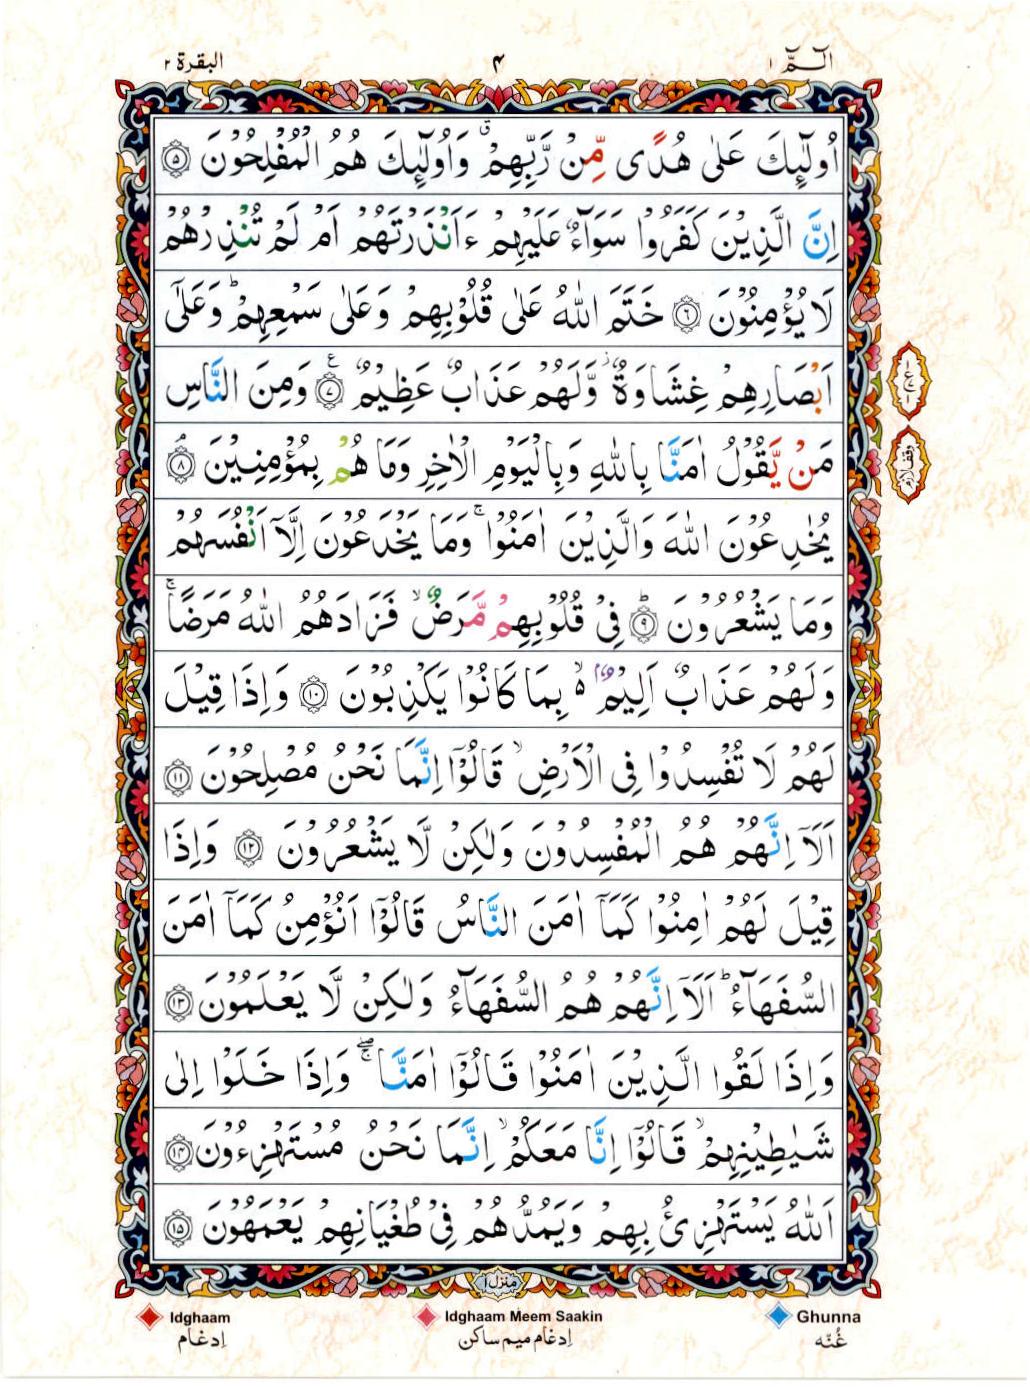 الٓـمّٓ ١
۴
البقرة ٢
اُولٰٓئِكَ عَلٰى هُدًى مِّنْ رَّبِّهِمْ ۗ وَاُولٰٓئِكَ هُمُ الْمُفْلِحُوْنَ ۝٥
اِنَّ الَّذِيْنَ كَفَرُوْا سَوَآءٌ عَلَيْهِمْ ءَاَنْذَرْتَهُمْ اَمْ لَمْ تُنْذِرْهُمْ
لَا يُؤْمِنُوْنَ ۝٦ خَتَمَ اللّٰهُ عَلٰى قُلُوْبِهِمْ وَعَلٰى سَمْعِهِمْ ؕ وَعَلٰٓى
اَبْصَارِهِمْ غِشَاوَةٌ ؗ وَّلَهُمْ عَذَابٌ عَظِيْمٌ ۝٧ ع وَمِنَ النَّاسِ
مَنْ يَّقُوْلُ اٰمَنَّا بِاللّٰهِ وَبِالْيَوْمِ الْاٰخِرِ وَمَا هُمْ بِمُؤْمِنِيْنَ ۝٨ۘ
وقف لازم
يُخٰدِعُوْنَ اللّٰهَ وَالَّذِيْنَ اٰمَنُوْا ۚ وَمَا يَخْدَعُوْنَ اِلَّآ اَنْفُسَهُمْ
وَمَا يَشْعُرُوْنَ ۝٩ؕ فِيْ قُلُوْبِهِمْ مَّرَضٌ ۙ فَزَادَهُمُ اللّٰهُ مَرَضًا ۚ
وَلَهُمْ عَذَابٌ اَلِيْمٌۢ ۙ۬ بِمَا كَانُوْا يَكْذِبُوْنَ ۝١٠ وَاِذَا قِيْلَ
لَهُمْ لَا تُفْسِدُوْا فِى الْاَرْضِ ۙ قَالُوْٓا اِنَّمَا نَحْنُ مُصْلِحُوْنَ ۝١١
اَلَآ اِنَّهُمْ هُمُ الْمُفْسِدُوْنَ وَلٰكِنْ لَّا يَشْعُرُوْنَ ۝١٢ وَاِذَا
قِيْلَ لَهُمْ اٰمِنُوْا كَمَآ اٰمَنَ النَّاسُ قَالُوْٓا اَنُؤْمِنُ كَمَآ اٰمَنَ
السُّفَهَآءُ ؕ اَلَآ اِنَّهُمْ هُمُ السُّفَهَآءُ وَلٰكِنْ لَّا يَعْلَمُوْنَ ۝١٣
وَاِذَا لَقُوا الَّذِيْنَ اٰمَنُوْا قَالُوْٓا اٰمَنَّا ۖۚ وَاِذَا خَلَوْا اِلٰى
شَيٰطِيْنِهِمْ ۙ قَالُوْٓا اِنَّا مَعَكُمْ ۙ اِنَّمَا نَحْنُ مُسْتَهْزِءُوْنَ ۝١٤
اَللّٰهُ يَسْتَهْزِئُ بِهِمْ وَيَمُدُّهُمْ فِيْ طُغْيَانِهِمْ يَعْمَهُوْنَ ۝١٥
منزل ١
Idghaam
ادغام
Idghaam Meem Saakin
ادغام ميم ساكن
Ghunna
غُنّه